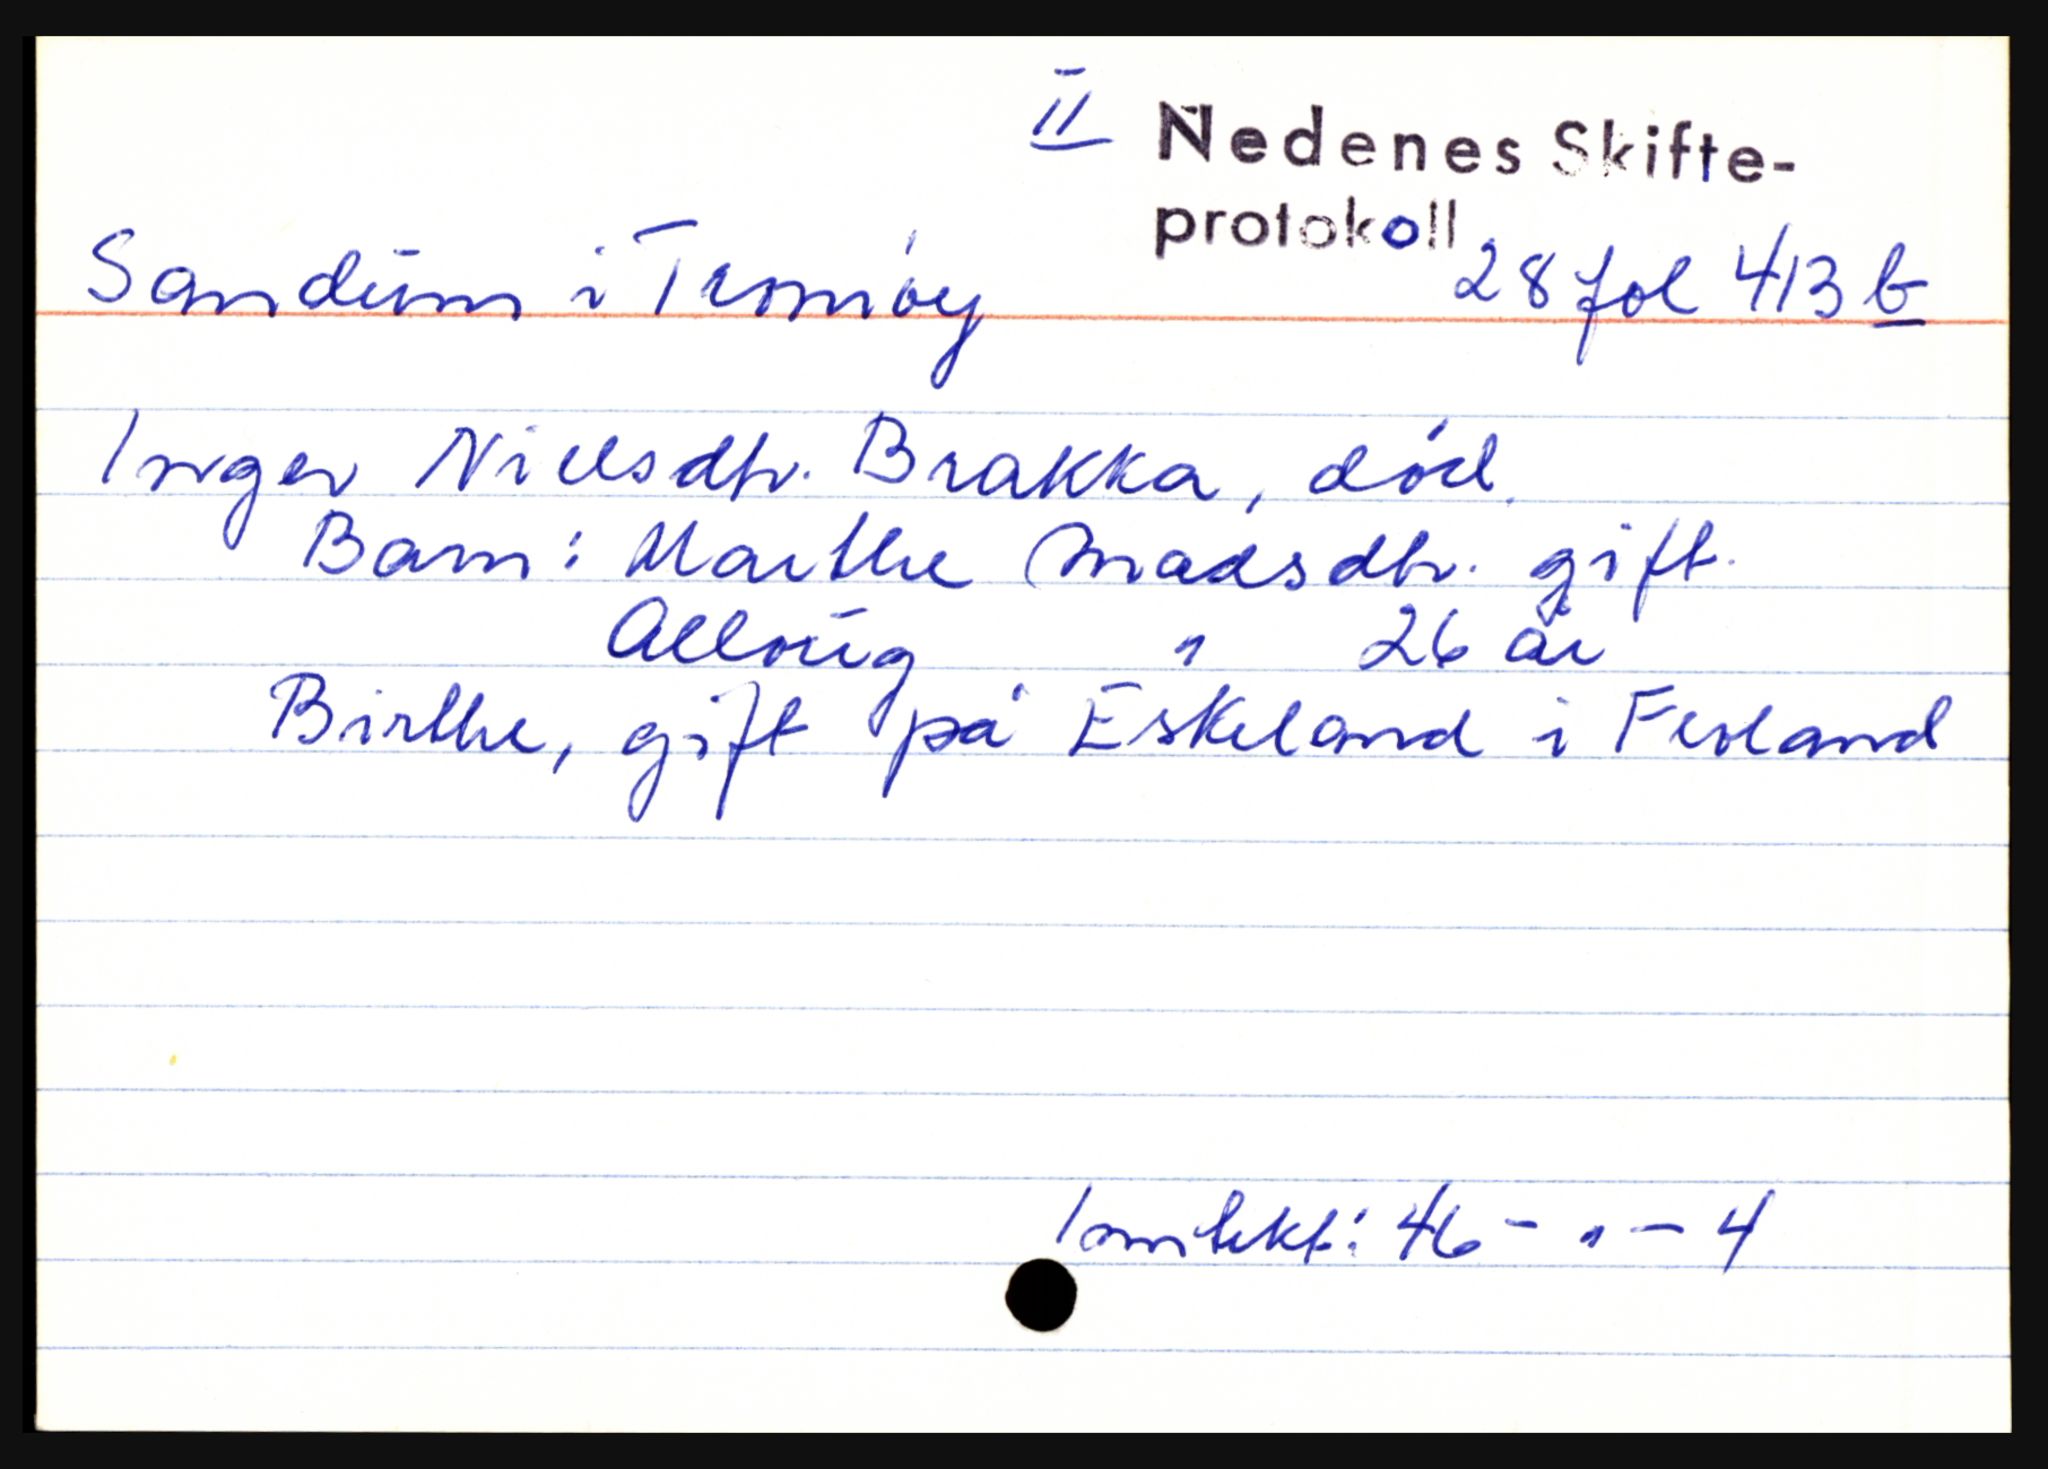 II Nedenes Skifte-
protokoll
Sandum i Tromøy 28 fol 413 b
Inger Nielsdtr. Brakka, død.
Barn: Marthe Madsdtr. gift.
Alloug " 26 år
Birthe, gift på Eskeland i Ferland
Inntekt: 46 - " - 4